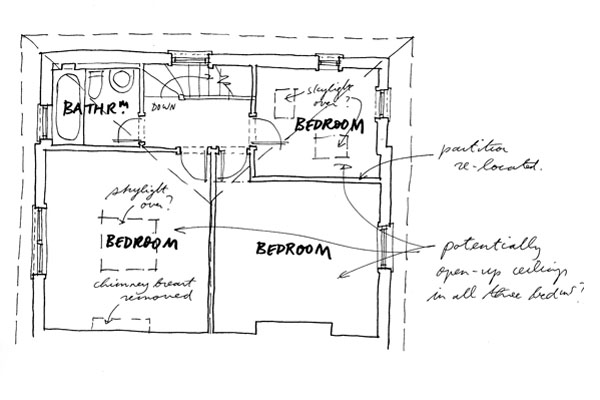 BATHRM
DOWN
skylight
over?
BEDROOM
partition
re-located.
skylight
over?
BEDROOM
BEDROOM
potentially
open-up ceilings
in all three bedms?
chimney breast
removed